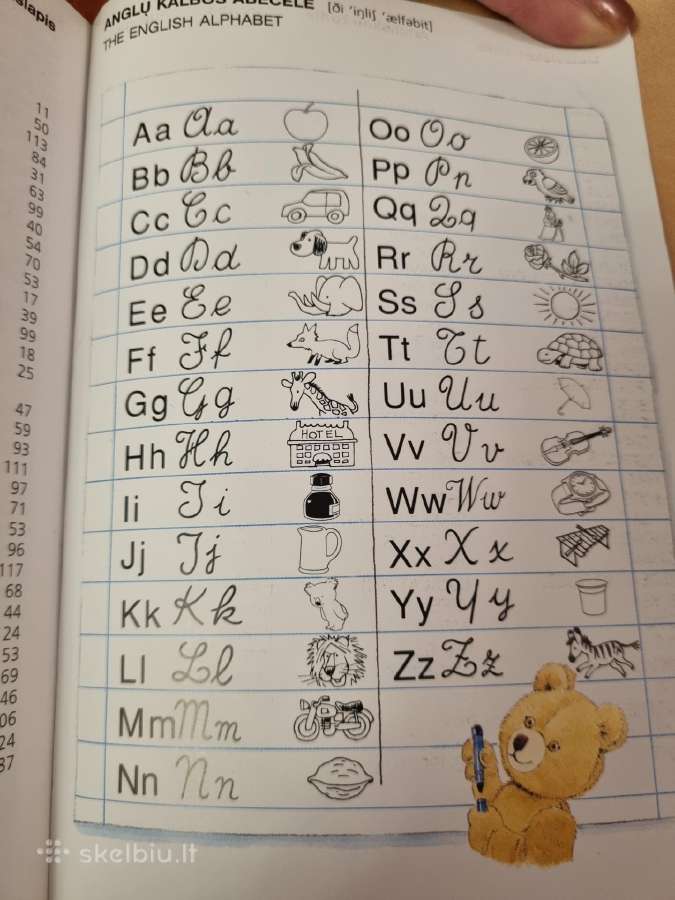 slapis
11
50
113
84
31
63
99
40
54
70
53
17
39
99
18
25
47
59
93
111
97
71
53
96
117
68
44
24
53
69
46
06
24
37
ANGLŲ KALBOS ABĖCĖLĖ [ði ˈiŋliʃ ˈælfəbit]
THE ENGLISH ALPHABET
Aa Aa
Bb Bb
Cc Cc
Dd Dd
Ee Ee
Ff Ff
Gg Gg
Hh Hh
HOTEL
Ii Ii
Jj Jj
Kk Kk
Ll Ll
Mm Mm
Nn Nn
Oo Oo
Pp Pp
Qq Qq
Rr Rr
Ss Ss
Tt Tt
Uu Uu
Vv Vv
Ww Ww
Xx Xx
Yy Yy
Zz Zz
skelbiu.lt